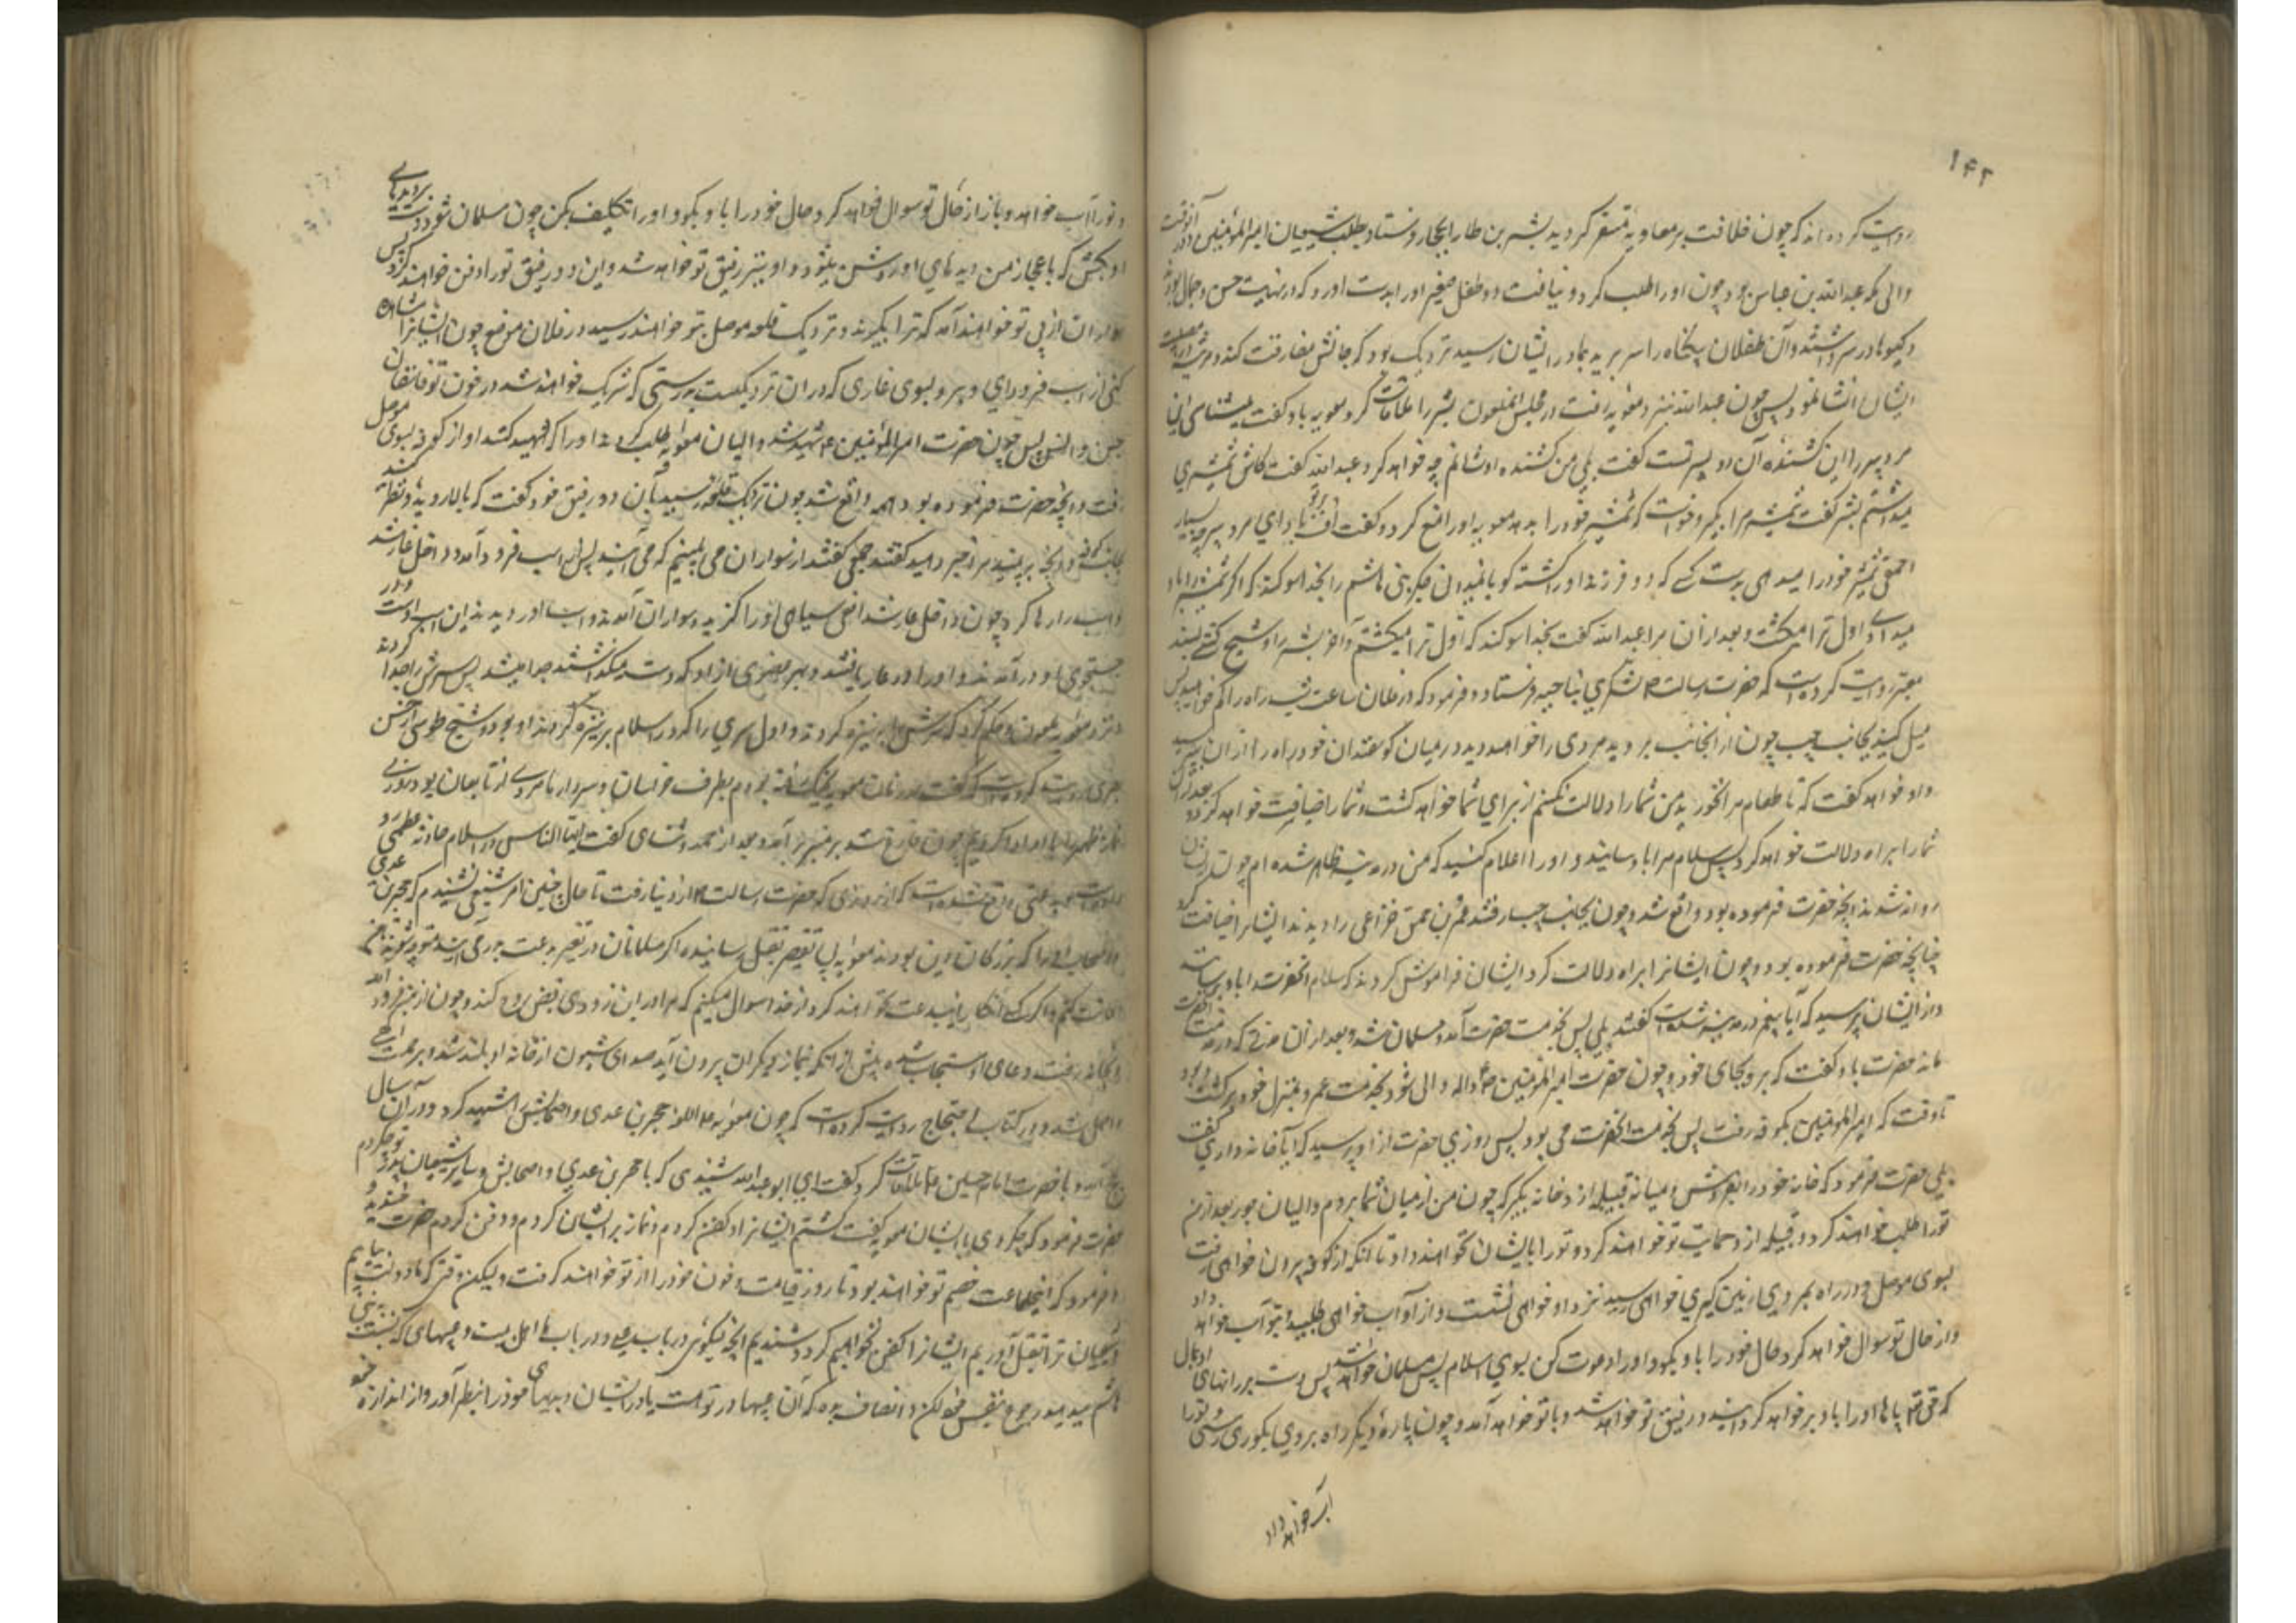 ۱۴۲
روایت کرده اند که چون خلافت بر معاویه مستقر کردید بشر بن طار بحجاز فرستاد و طلب شیعیان امیرالمؤمنین و در آنوقت
والی مکه عبدالله بن عباس بود چون او را طلب کرد و نیافت دو طفل صغیر او را بدست آورد که در نهایت حسن و جمال بودند
و کیسوها در سر داشتند و آن طفلان بیکناه را سر برید بمادر ایشان رسید نزدیک بود که جانش مفارقت کند و مرثیه در مصیبت
ایشان انشا نمود پس چون عبدالله نیز نزد معویه رفت در مجلس آنملعون بشر را ملاقات کرد معویه باو کفت میشناسی این
مرد پیر را این کشنده آن دو پسر تست کفت بلی من کشنده اوشانم چه خواهد کرد عبدالله کفت کاش شمشیری
میداشتم بشر کفت شمشیر مرا بکیر و خواست که شمشیر خود را بدهد معویه او را منع کرد و کفت اف بر تو باد ای مرد پیر چه بسیار
احمقی شمشیر خود را میدهی بدست کسی که دو فرزند او را کشته کویا نمیدانی جکر بنی هاشم را بخدا سوکند که اکر شمشیر را باو
میدادی اول ترا میکشت و بعد از آن مرا عبدالله کفت بخدا سوکند که اول ترا میکشتم و آخر بشر را و شیخ کشی بسند
معتبر روایت کرده است که حضرت رسالت لشکری بناحیه فرستاد و فرمود که در فلان ساعت شب راه را کم خواهید کرد پس
میل کنید بجانب چپ چون از آنجانب بروید مردی را خواهید دید در میان کوسفندان خود راه را از آن بپرسید
و او خواهد کفت که تا طعام مرا نخورید من شما را دلالت نکنم از برای شما خواهد کشت و شما را ضیافت خواهد کرد و بعد از آن
شما را براه دلالت خواهد کرد پس سلام مرا باو رسانید و او را اعلام کنید که من در مدینه ظاهر شده ام چون ایشان
روانه شدند آنچه حضرت فرموده بود واقع شد و چون بجانب چپ رفتند عمر بن حمق خزاعی را دیدند ایشانرا ضیافت کرد
چنانچه حضرت فرموده بود و چون ایشانرا براه دلالت کرد ایشان فراموش کردند که سلام آنحضرت را باو برسانند
و از ایشان پرسید که آیا پیغمبر در مدینه ظاهر شده است کفتند بلی پس بخدمت حضرت آمد و مسلمان شد و بعد از آن مدتی که در خدمت آنحضرت
ماند حضرت باو کفت که برو بجای خود و چون حضرت امیرالمؤمنین والی شود بخدمت او برو عمرو بمنزل خود برکشت و بود
تا وقت که امیرالمؤمنین بکوفه رفت پس بخدمت آنحضرت می بود پس روزی حضرت از او پرسید که آیا خانه داری کفت
بلی حضرت فرمود که خانه خود را بفروش و در میانه قبیله ازد خانه بکیر که چون من از میان شما بروم والیان جور بعد از من
تو را طلب خواهند کرد و قبیله ازد حمایت تو خواهند کرد و تو را بایشان نخواهند داد تا آنکه از کوفه بیرون خواهی رفت
بسوی موصل و در راه بمردی زمین کیری خواهی رسید نزد او خواهی نشست و از او آب خواهی طلبید و بتو آب خواهد داد
و از حال تو سوال خواهد کرد حال خود را باو بکو و او را دعوت کن بسوی اسلام پس مسلمان خواهد شد پس دست بر رانهای او بمال
که حق تعالی پاها او را باو بر خواهد کردانید و رفیق تو خواهد شد و با تو خواهد آمد و چون پاره دیکر راه بروی بکوری رسی و تو را
آب خواهد داد
و تو را آب خواهد داد و باز از حال تو سوال خواهد کرد حال خود را باو بکو و او را تکلیف کن چون مسلمان شود دست بر دیدهای
او بکش که باعجاز من دیدهای او روشن میشود و او نیز رفیق تو خواهد شد و این دو رفیق تو را دفن خواهند کرد پس
سواران از پی تو خواهند آمد که ترا بکیرند و نزدیک قلعه موصل بتو خواهند رسید در فلان موضع چون ایشانرا مشاهده
کنی از اسب فرود آی و برو بسوی غاری که در آن نزدیکست بدرستی که شریک خواهند شد در خون تو فاسقان
جن و انس پس چون حضرت امیرالمؤمنین شهید شد والیان معویه طلب کردند او را که شهید کنند او از کوفه بسوی موصل
رفت و آنچه حضرت فرموده بود همه واقع شد چون نزدیک قلعه رسید بآن دو رفیق خود کفت که بالا روید و نظر کنید
بجانب کوفه و آنچه ببینید مرا خبر دهید کفتند جمعی از سواران می بینیم که می آیند پس از اسب فرود آمد و داخل غار شد
و اسب را رها کرد چون داخل غار شد افعی سیاهی او را کزید و سواران آمدند و اسب او را دیدند این اسب اوست و در
جستجوی او درآمدند و او را در غار یافتند و بهر عضوی از او که دست میکذاشتند جدا میشد پس سرش را جدا کردند
و نزد معویه ملعون و حکم کرد که سرش را بر نیزه کردند و اول سری را که در اسلام بر نیزه کردند او بود و شیخ طوسی از حسن
بصری روایت کرده است که کفت در زمان معویه بجنک رفته بودم بطرف خراسان و سردار ما مردی از تابعان بود روزی
نماز ظهر را با او ادا کردیم چون فارغ شد بر منبر برآمد و بعد از حمد و ثنای کفت ایها الناس در اسلام حادثه عظمی رو
داده است و بدعتی واقع شده است که از روزی که حضرت رسالت از دنیا رفت تا حال چنین امر شنیعی نشنیدم که حجر بن عدی
و اصحاب او را که بزرکان دین بودند معویه بی تقصیر بقتل رسانیده اکر مسلمانان در تغییر بدعت بدر می آیند
اعانت کنم و اکر کسی انکار این بدعت نخواهند کرد از خدا سوال میکنم که مرا در این زودی قبض روح کند و چون از منبر فرود آمد
و بخانه رفت دعای او مستجاب شده پیش از آنکه بنماز دیکران بیرون آید صدای شیون از خانه او بلند شد و برحمت الهی
واصل شد و در کتاب احتجاج روایت کرده است که چون معویه حجر بن عدی و اصحابش را شهید کرد و در آن سال
بحج آمد و با حضرت امام حسین ملاقات کرد کفت ای ابوعبدالله شنیدی که با حجر بن عدی و اصحابش و سایر شیعیان پدر تو چکردم
حضرت فرمود که چکردی با ایشان معویه کفت کشتم ایشانرا و کفن کردم و نماز بر ایشان کردم و دفن کردم حضرت خندید و
فرمود که اینجماعت خصم تو خواهند بود تا روز قیامت و خون خود را از تو خواهند کرفت ولیکن وقتی که ما دولت بیابیم
و شیعیان ترا بقتل آوریم ایشانرا کفن نخواهیم کرد و شنیدم آنچه میکوئی در باب پدرم و در باب ما اهل بیت و عیبهای که نسبت به بنی
هاشم میدهی رجوع بنفس خود کن و انصاف بده که آن عیبها در تو هست یا در ایشان و عیبهای خود را بنظر آور و از اندازه خود